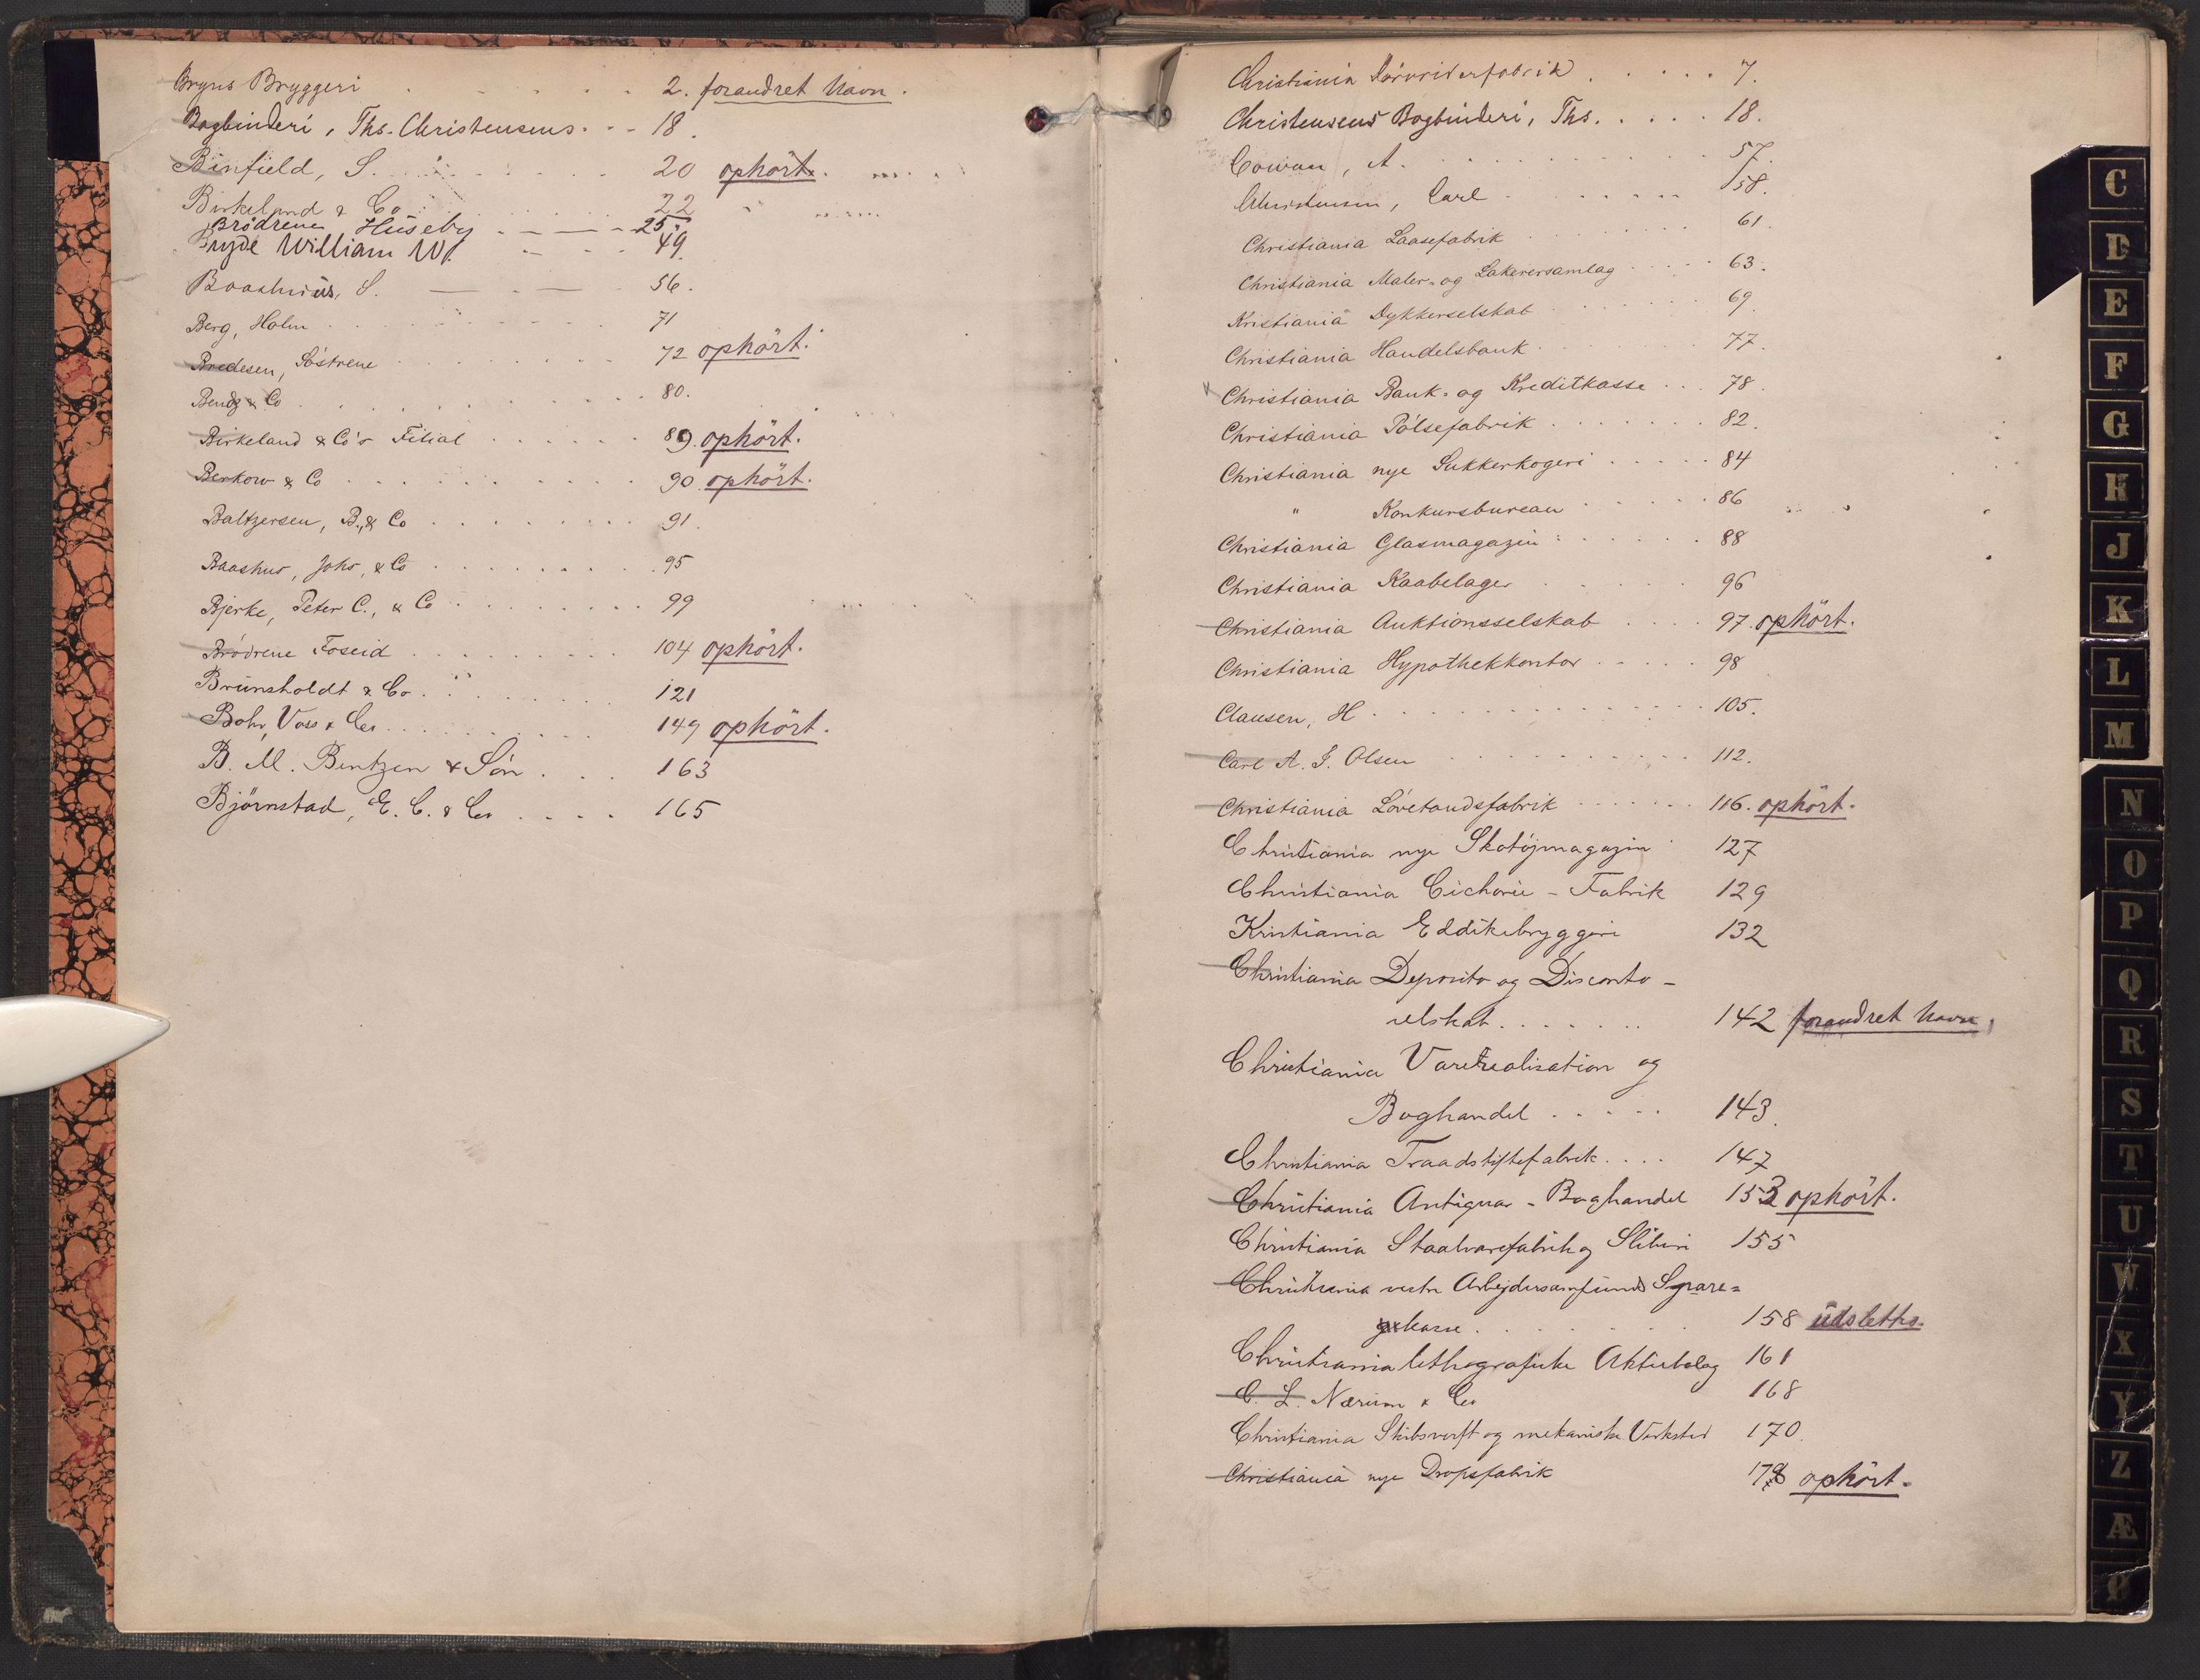 Bryns Bryggeri 2. forandret Navn.
Bogbinderi, Ths. Christensens 18.
Binfield, S. 20 ophört.
Birkelund & Co 22 "
Brödrene Huseby 25.
Bryde William W. 49.
Baashuus, S. 56.
Berg, Holm 71
Bredesen, Söstrene 72 ophört.
Bendz & Co 80.
Birkeland & Co's Filial 89. ophört.
Berkow & Co 90. ophört.
Baltzersen, B., & Co 91.
Baashus, Johs, & Co 95
Bjerke, Peter C., & Co 99
Brödrene Foseid 104 ophört.
Brunsholdt & Co. 121
Bohr, Voss & Co 149 ophört.
B. M. Bentzen & Sön 163
Björnstad, E. C. & Co 165
Christiania Farveriderfabrik 7.
Christensens Bogbinderi, Ths. 18.
Cowan, A. 57.
Christensen, Carl 58.
Christiania Laasefabrik 61
Christiania Maler- og Lakerersamlag 63.
Kristiania Dykkerselskab 69.
Christiania Handelsbank 77.
Christiania Bank- og Kreditkasse 78.
Christiania Pölsefabrik 82.
Christiania nye Sukkerkogeri 84
" Konkursbureau 86
Christiania Glasmagazin 88
Christiania Kaabelager 96
Christiania Auktionsselskab 97. ophört.
Christiania Hypothekkontor 98
Clausen, H 105.
Carl A. J. Olsen 112.
Christiania Lövetandsfabrik 116. ophört.
Christiania nye Skotöjmagazin 127
Christiania Cichorie-Fabrik 129
Kristiania Eddikebryggeri 132
Christiania Deposito og Disconto-
selskab 142 forandret Navn.
Christiania Varerealisation og
Boghandel 143.
Christiania Traadstiftefabrik 147
Christiania Antiqvar-Boghandel 153 ophört.
Christiania Staalvarefabrik og Sliberi 155
Christiania vestre Arbejdersamfunds Spare-
kasse 158 udslettes.
Christiania lithografiske Aktiebolag 161
C. L. Nærum & Co 168
Christiania Skibsverft og mekaniske Verksted 170.
Christiania nye Dropsfabrik 178 ophört.
C
D
E
F
G
H
J
K
L
M
N
O
P
Q
R
S
T
U
W
X
Y
Z
Æ
Ø